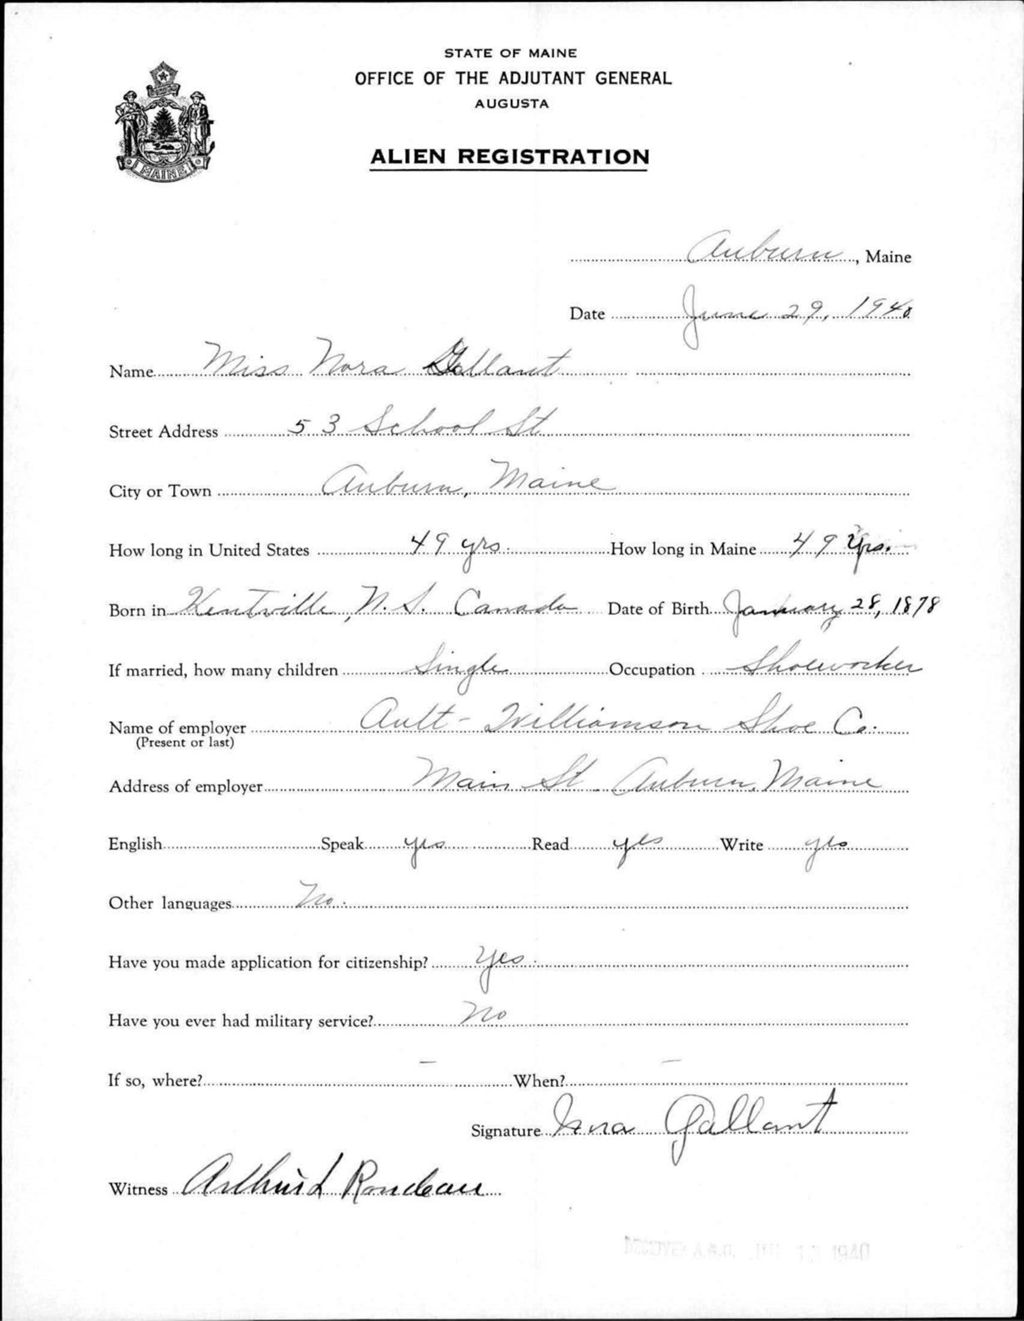 STATE OF MAINE
OFFICE OF THE ADJUTANT GENERAL
AUGUSTA
MAINE
ALIEN REGISTRATION
Auburn, Maine
Date June 29, 1940
Name Miss Nora Gallant
Street Address 53 School St
City or Town Auburn, Maine
How long in United States 49 yrs. How long in Maine 49 yrs.
Born in Kentville, N.S. Canada Date of Birth January 28, 1878
If married, how many children Single Occupation Shoeworker
Name of employer Ault-Williamson Shoe Co.
(Present or last)
Address of employer Main St. Auburn, Maine
English Speak yes Read yes Write yes
Other languages No.
Have you made application for citizenship? Yes.
Have you ever had military service? No
If so, where? – When? –
Signature Nora Gallant
Witness Arthur L Rondeau
1940